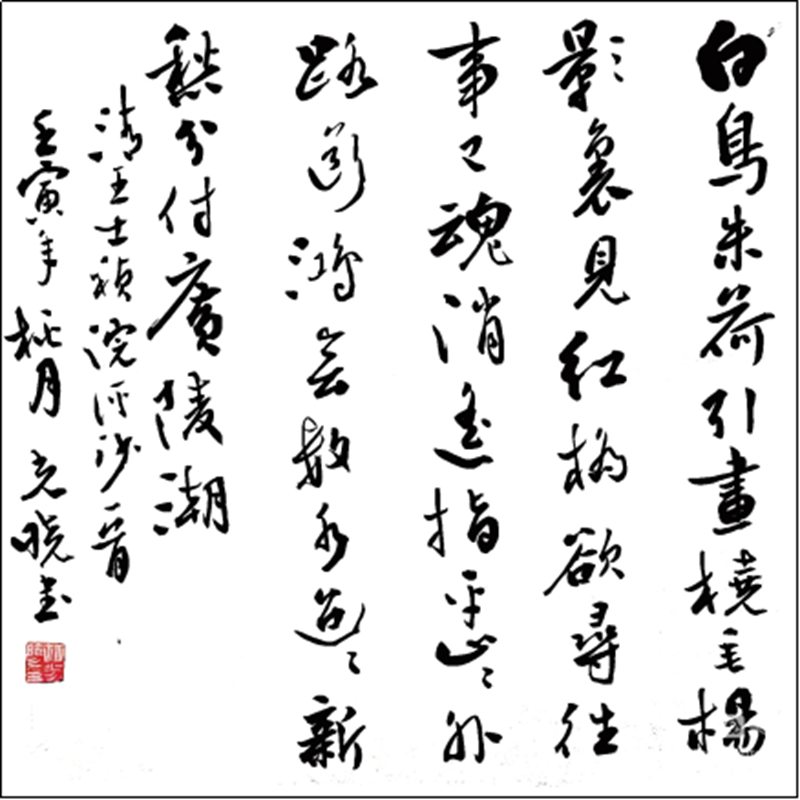 白鳥朱荷引畫橈垂楊
影裏見紅橋欲尋往
事已魂消遙指平山々外
路斷鴻無數水迢々新
愁分付廣陵潮
清王士禛浣溪沙一首
壬寅年桃月晓書